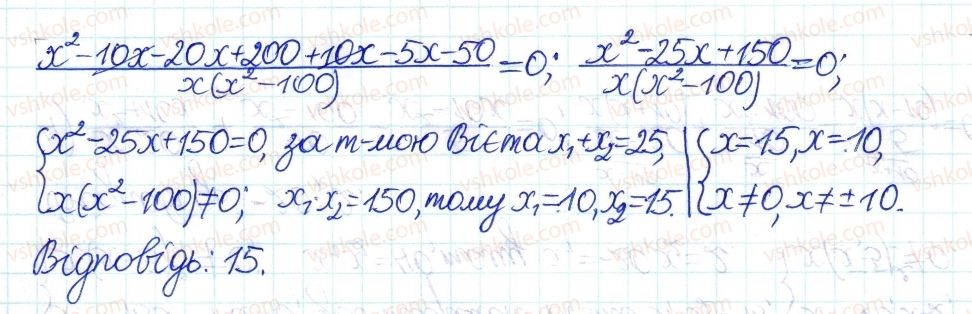 (x² - 10x - 20x + 200 + 10x - 5x - 50) / (x(x² - 100)) = 0; (x² - 25x + 150) / (x(x² - 100)) = 0;
{x² - 25x + 150 = 0, за т-мою Вієта x₁ + x₂ = 25, | {x = 15, x = 10,
x(x² - 100) ≠ 0; x₁ · x₂ = 150, тому x₁ = 10, x₂ = 15. | x ≠ 0, x ≠ ± 10.
Відповідь: 15.